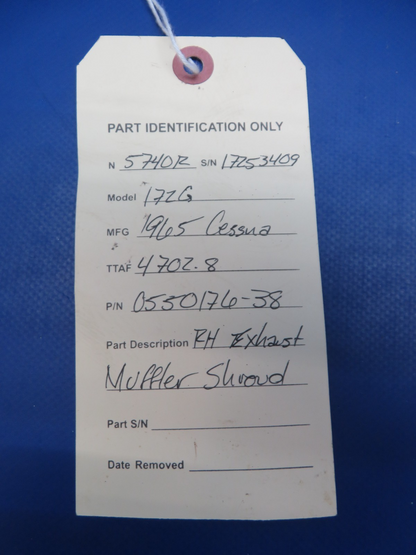 PART IDENTIFICATION ONLY
N 5740R S/N 17253409
Model 172G
MFG 1965 Cessna
TTAF 4702.8
P/N 0550176-38
Part Description RH Exhaust
Muffler Shroud
Part S/N
Date Removed